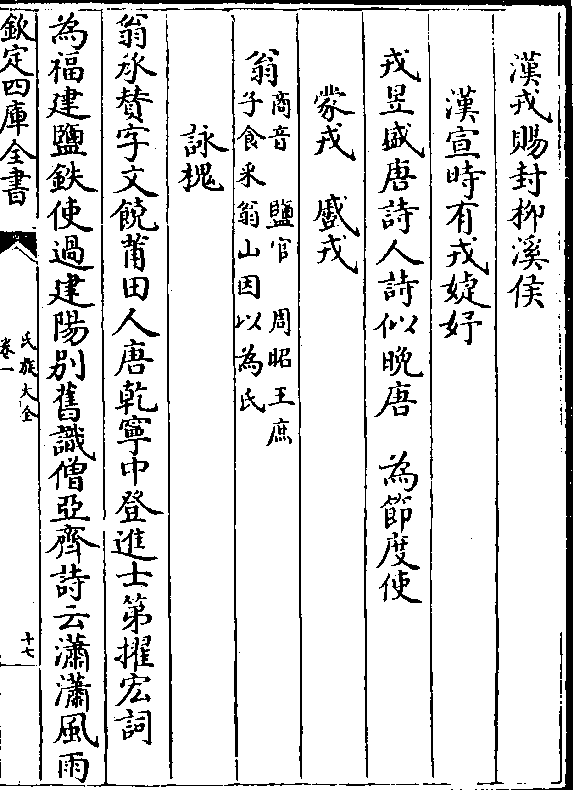 漢戎賜封柳溪侯
漢宣時有戎婕妤
戎昱盛唐詩人詩似晚唐　為節度使
蒙戎　盛戎
翁
商音　鹽官　周昭王庶
子食采翁山因以為氏
詠槐
翁承賛字文饒莆田人唐乾寧中登進士第擢宏詞
為福建鹽鉄使過建陽别舊識僧亞齊詩云瀟瀟風雨
欽定四庫全書
氏族大全
卷一
十七